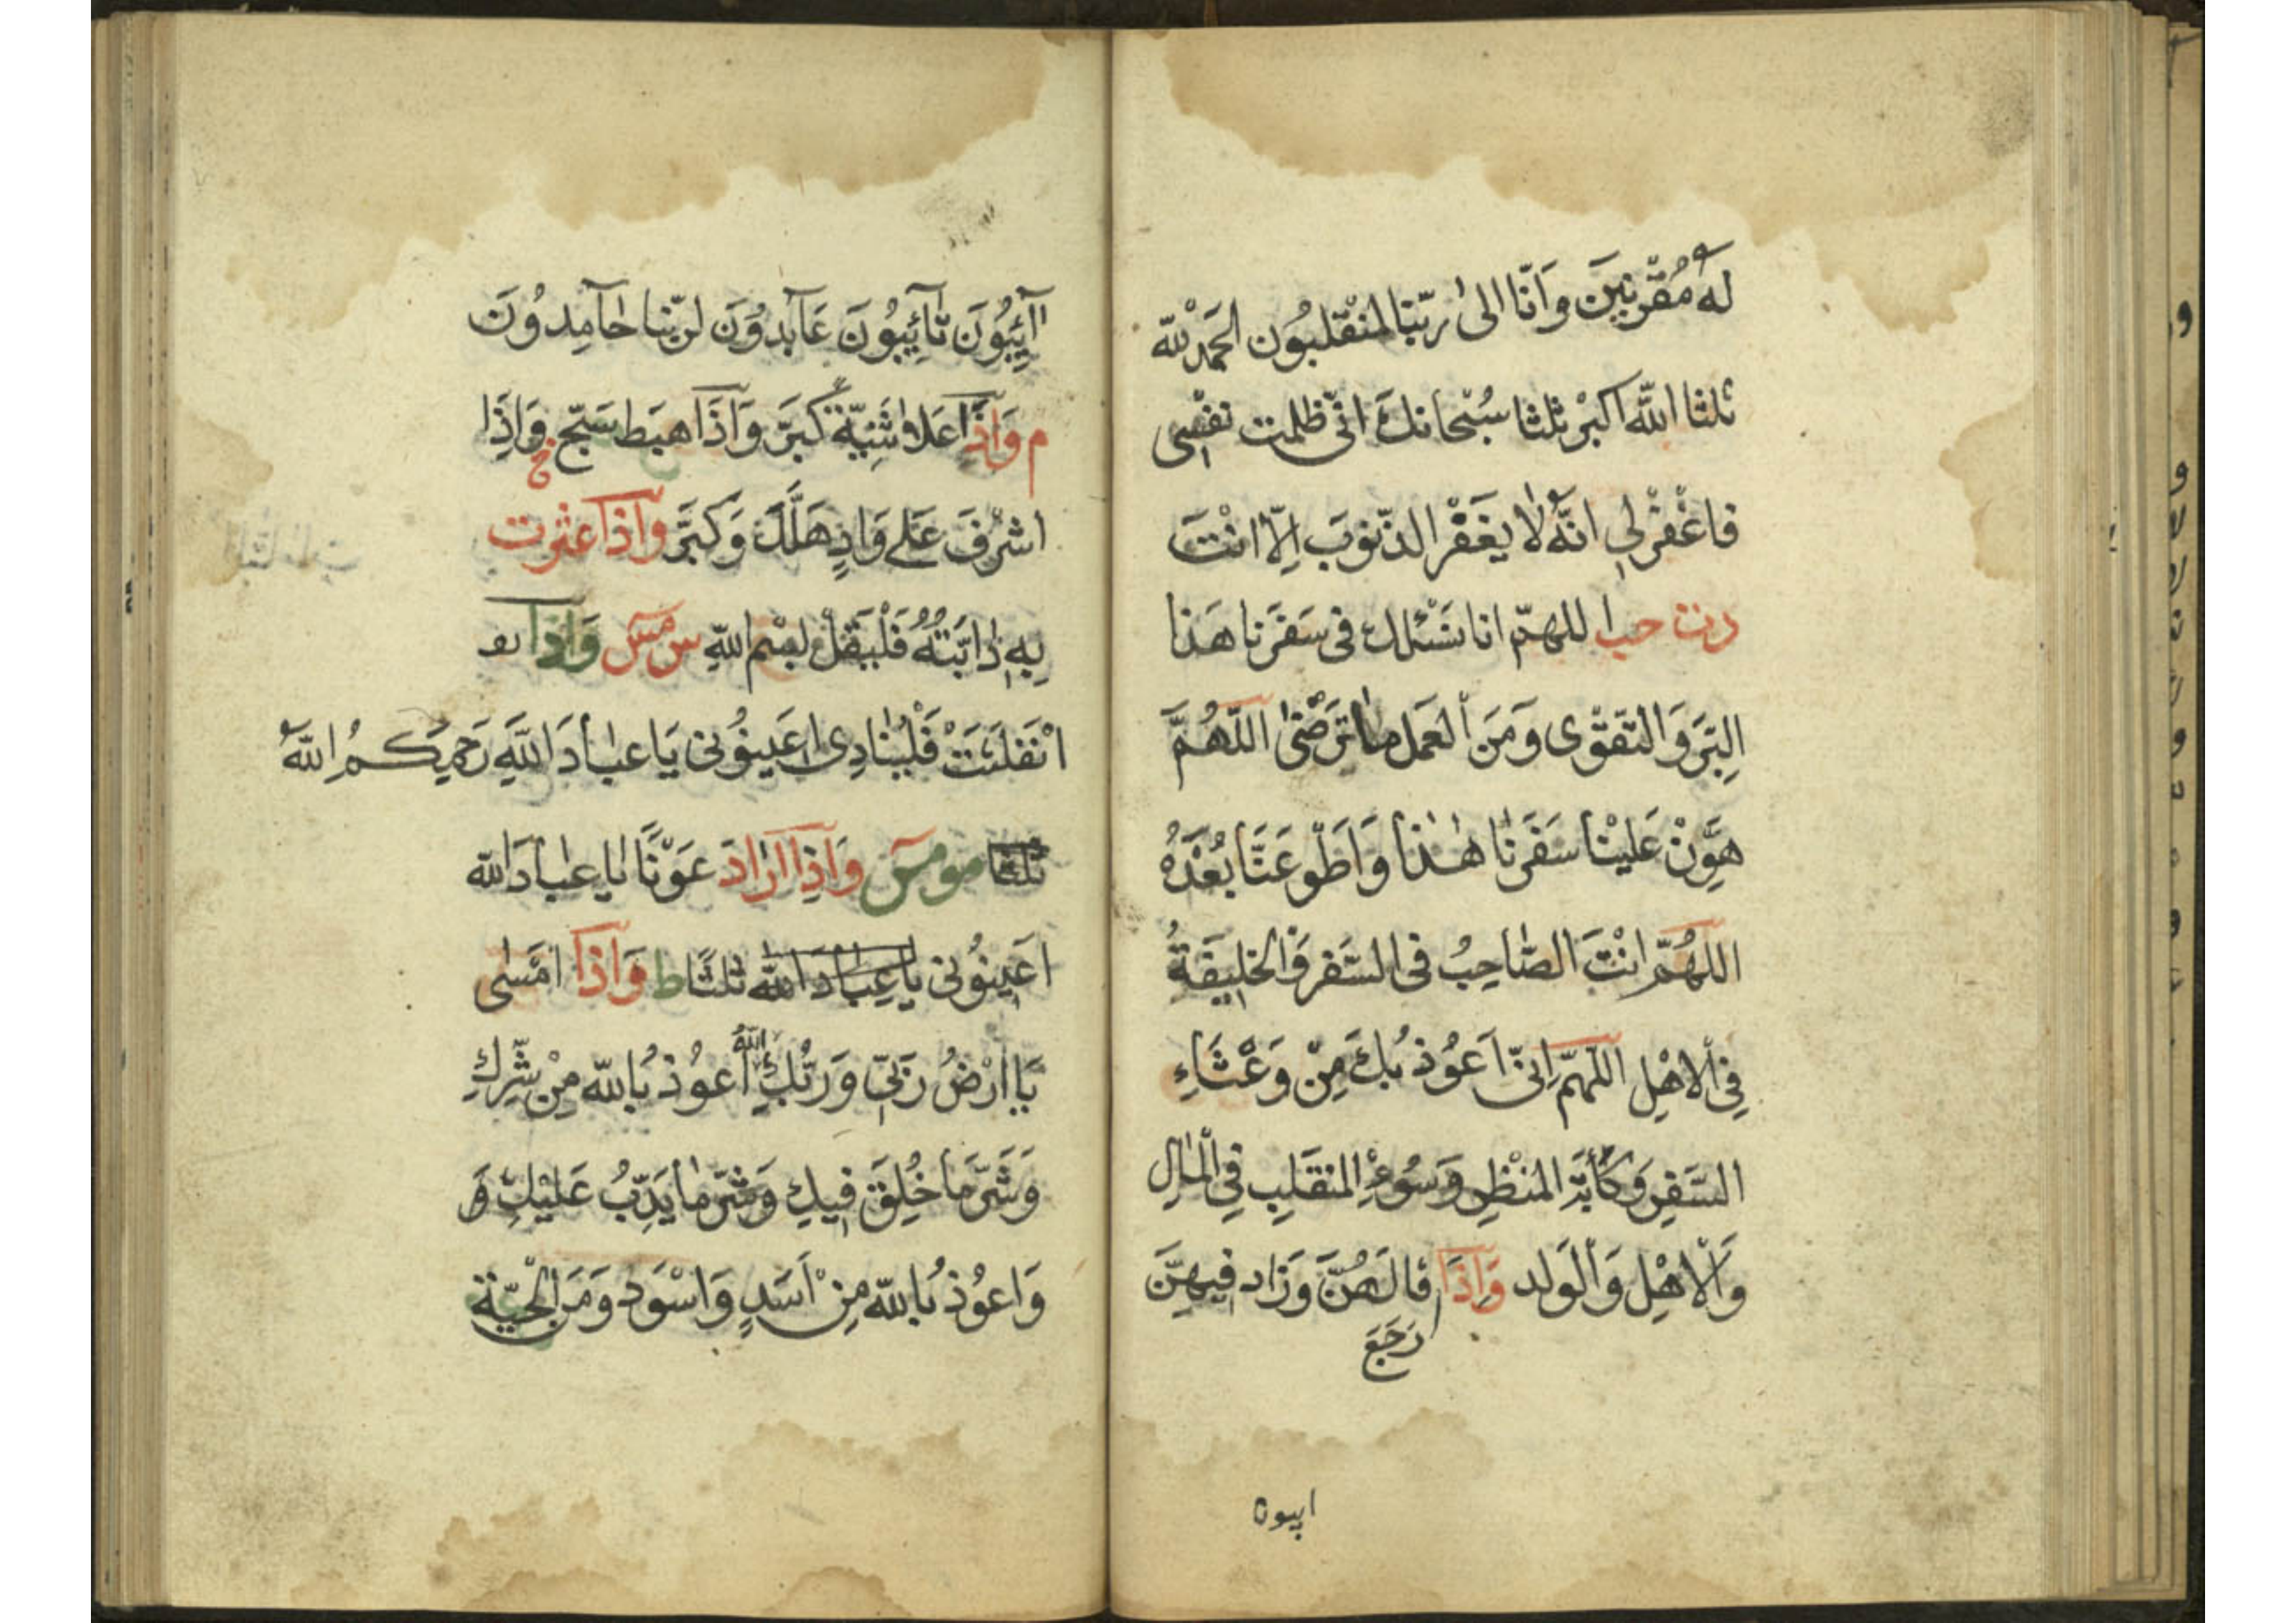 لَهُ مُقْرِنِينَ وَاَنَّا اِلىٰ رَبّنَا لمُنْقَلِبُونَ الحَمْدُ لِلّٰه
ثلثا اللّٰه اكبَرْ ثلثا سُبْحانكَ انّى ظلمت نفسِى
فاغْفِرْ لِى انّهُ لا يَغفرُ الذّنوبَ اِلّا انْتَ
دت حب اللهمّ انا نسْئلك فى سَفَرنا هَذا
البِرَّ وَالتقوى وَمَنَ العَمل ماترَضىٰ اللّهُمَّ
هَوِّنْ عَلَيْنا سَفَرَنٰا هٰذا وَاَطْوِ عَنَّا بُعْدَهُ
اللهُمّ انْتَ الصّٰاحِبُ فى السّفر وَالخلِيفَةُ
فِى الاهْلِ اللّهمّ اِنّى اَعُوُذ بُكَ مِنْ وَعْثَاءِ
السّفرِ وَكَأبَةِ المنْظِرِ وَسُوُءِ المنقَلبِ فِى المَالِ
وَالاهْلِ وَالوَلد وَاِذَا قَالَهُنَّ وَزاد فِيهِنَّ
رَجَعَ
ايبون
آئِبُونَ تٰائِبُونَ عَآبدوُنَ لربّنا حٰامِدوُنَ
م وَاِذَا عَلا ثَنِيّةً كَبَّرَ وَاَذَا هبَط سَبّح خ وَاِذَا
اشرَفَ عَلى وَادٍ هَلَّلَ وَكَبَّرَ وَاذَا عثرت
بِهِ دٰابّتُهُ فَلْيقلْ بسْم اللّٰهِ س مس وَاِذا
انْفَلَتَتْ فَلْيُنٰادِى اعَينوُنى يَا عبٰادَ اللّٰهِ رَحمِكُمُ اللّٰهُ
ثلثا مو مص وَاِذا ارَادَ عَوْنًا يٰا عبٰادَ اللّٰه
اعَينوُنى يا عِبٰادَ اللّٰه ثلثًا ط وَاِذَا امْسٰى
يَا ارَضُ رَبّى وَرَبُّكِ اللّٰهُ اعوُذ بُاللّٰه مِنْ شّرِكِ
وَشَرّ مَا خُلِقَ فِيكِ وَشَرّ مٰا يَدِبُّ عَلَيْكِ وَ
وَاعوُذ بُاللّٰه مِنْ اَسَدٍ وَاسْوَد وَمَنَ الْحيّة